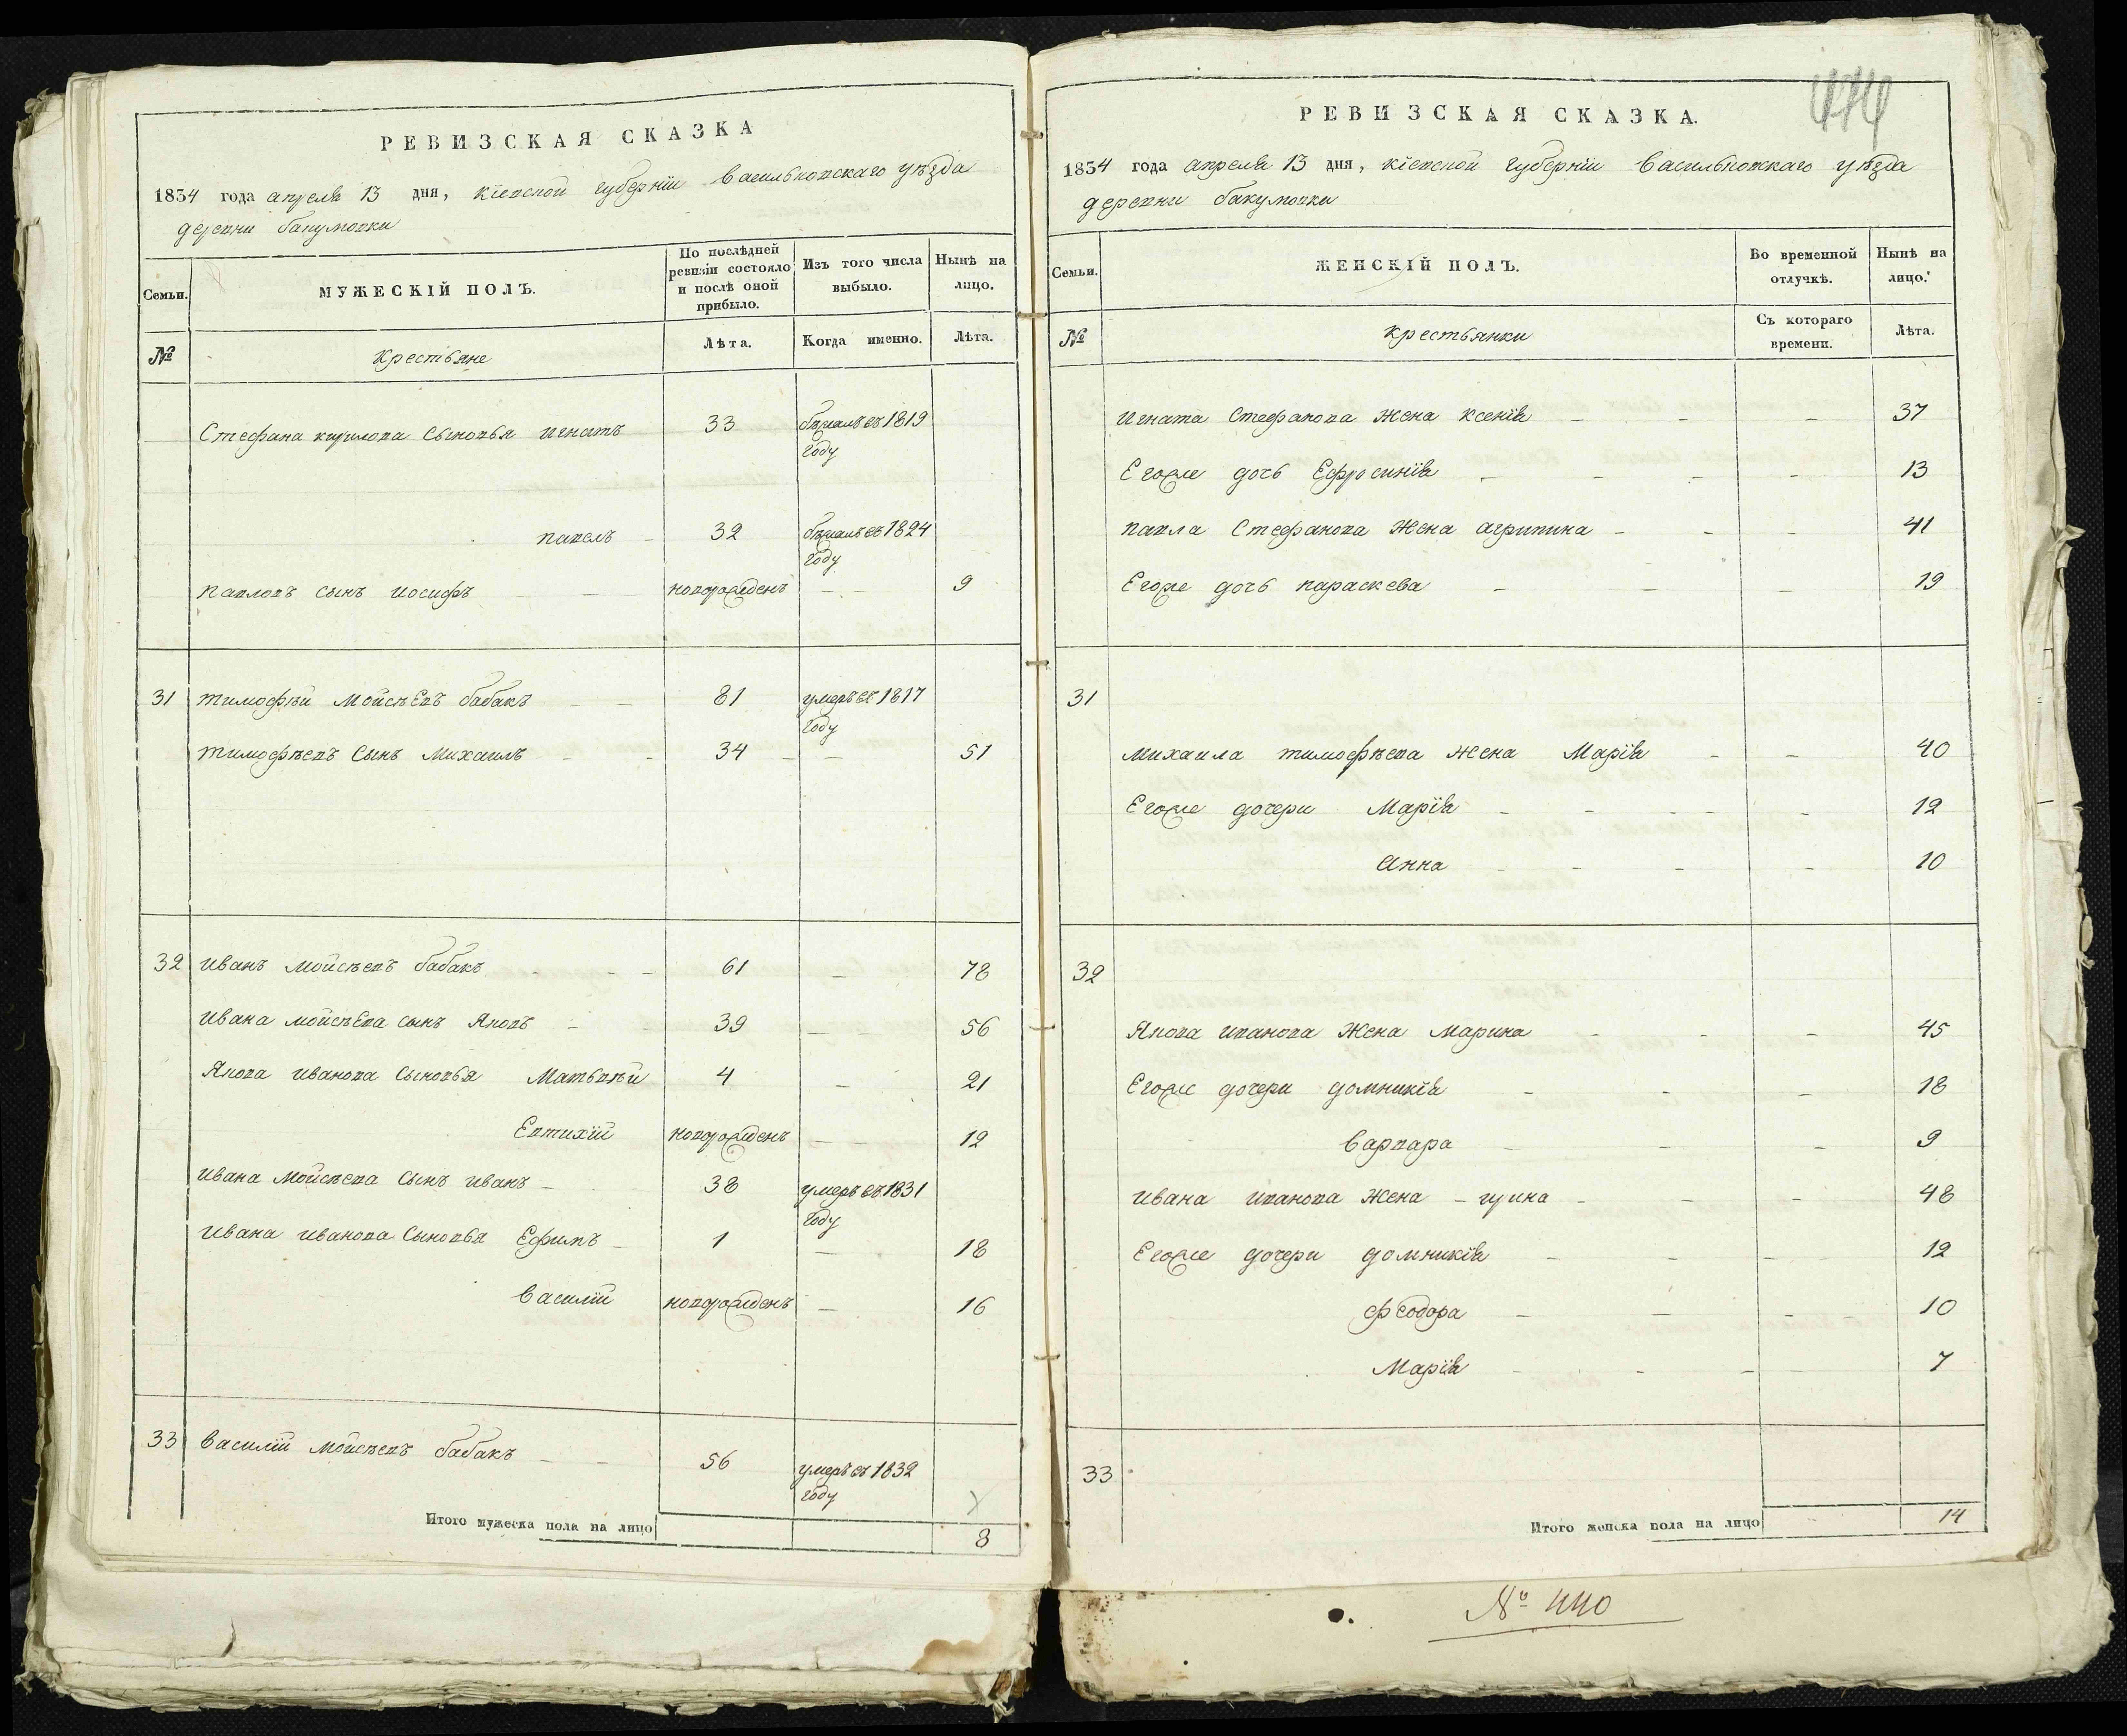 РЕВИЗСКАЯ СКАЗКА
1834 года апреля 13 дня, Кіевской губерніи Васильковскаго уѣзда
деревни Бакумовки
Семьи.
МУЖЕСКІЙ ПОЛЪ.
По послѣдней ревизіи состояло и послѣ оной прибыло.
Изъ того числа выбыло.
Нынѣ на лицо.
№
Крестьяне
Лѣта.
Когда именно.
Лѣта.
Стефана Кирилова сыновья Игнатъ 33 бѣжалъ въ 1819 году
Павелъ - 32 бѣжалъ въ 1824 году
Павловъ сынъ Иосифъ - - новорожденъ - - 9
31 Тимофѣй Мойсѣевъ Бабакъ - - 81 умеръ въ 1817 году
Тимофѣевъ сынъ Михаилъ - - 34 - - 51
32 Иванъ Мойсѣевъ Бабакъ - - - 61 - 78
Ивана Мойсѣева сынъ Яковъ - - 39 - - 56
Якова Иванова сыновья Матьвѣй 4 - 21
Евтихій новорожденъ - - 12
Ивана Мойсѣева сынъ Иванъ - 38 умеръ въ 1831 году
Ивана Иванова сыновья Ефимъ - 1 - 18
Василій новорожденъ - 16
33 Василій Мойсѣевъ Бабакъ - - 56 умеръ въ 1832 году
Итого мужеска пола на лицо 8
РЕВИЗСКАЯ СКАЗКА.
1834 года апреля 13 дня, Кіевской губерніи Васильковскаго уѣзда
деревни Бакумовки
Семьи.
ЖЕНСКІЙ ПОЛЪ.
Во временной отлучкѣ.
Нынѣ на лицо.
№
Крестьянки
Съ котораго времени.
Лѣта.
Игната Стефанова жена Ксенія - - - 37
Егоже дочь Ефросинія - - - - 13
Павла Стефанова жена Агрипина - - - 41
Егоже дочь Параскева - - - 19
31
Михаила Тимофѣева жена Марія - - 40
Егоже дочери Марія - - - - - 12
Анна - - - - 10
32
Якова Иванова жена Марина - - - 45
Егоже дочери Домникія - - - 18
Варвара - - - 9
Ивана Иванова жена - - - - 48
Егоже дочери Домникія - - - - 12
Феодора - - - - 10
Марія - - - - 7
33
Итого женска пола на лицо 14
№ 440